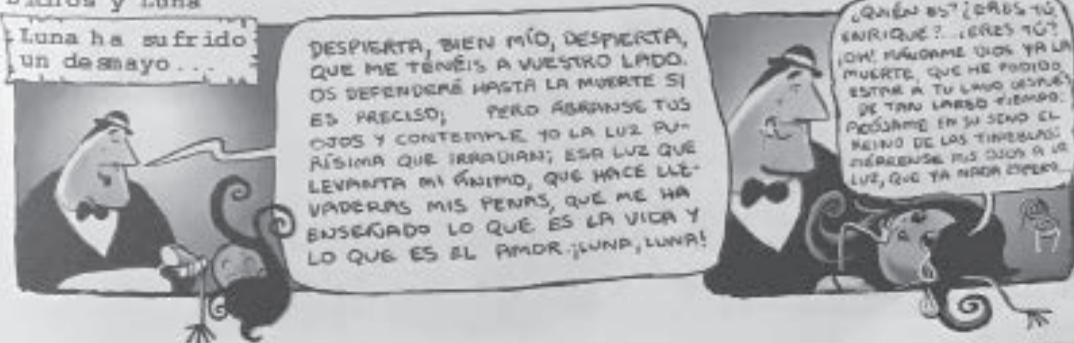 y Luna
Luna ha sufrido
un desmayo...
DESPIERTA, BIEN MÍO, DESPIERTA,
QUE ME TENÉIS A VUESTRO LADO.
OS DEFENDERÉ HASTA LA MUERTE SI
ES PRECISO; PERO ÁBRANSE TUS
OJOS Y CONTEMPLE YO LA LUZ PU-
RÍSIMA QUE IRRADIAN; ESA LUZ QUE
LEVANTA MI ÁNIMO, QUE HACE LLE-
VADERAS MIS PENAS, QUE ME HA
ENSEÑADO LO QUE ES LA VIDA Y
LO QUE ES EL AMOR. ¡LUNA, LUNA!
¿QUIÉN ES? ¿ERES TÚ,
ENRIQUE?... ¿ERES TÚ?
¡OH! MÁNDAME DIOS YA LA
MUERTE, QUE HE PODIDO
ESTAR A TU LADO DESPUÉS
DE TAN LARGO TIEMPO;
ACÓJAME EN SU SENO EL
REINO DE LAS TINIEBLAS;
CIÉRRENSE MIS OJOS A LA
LUZ, QUE YA NADA ESPERO...